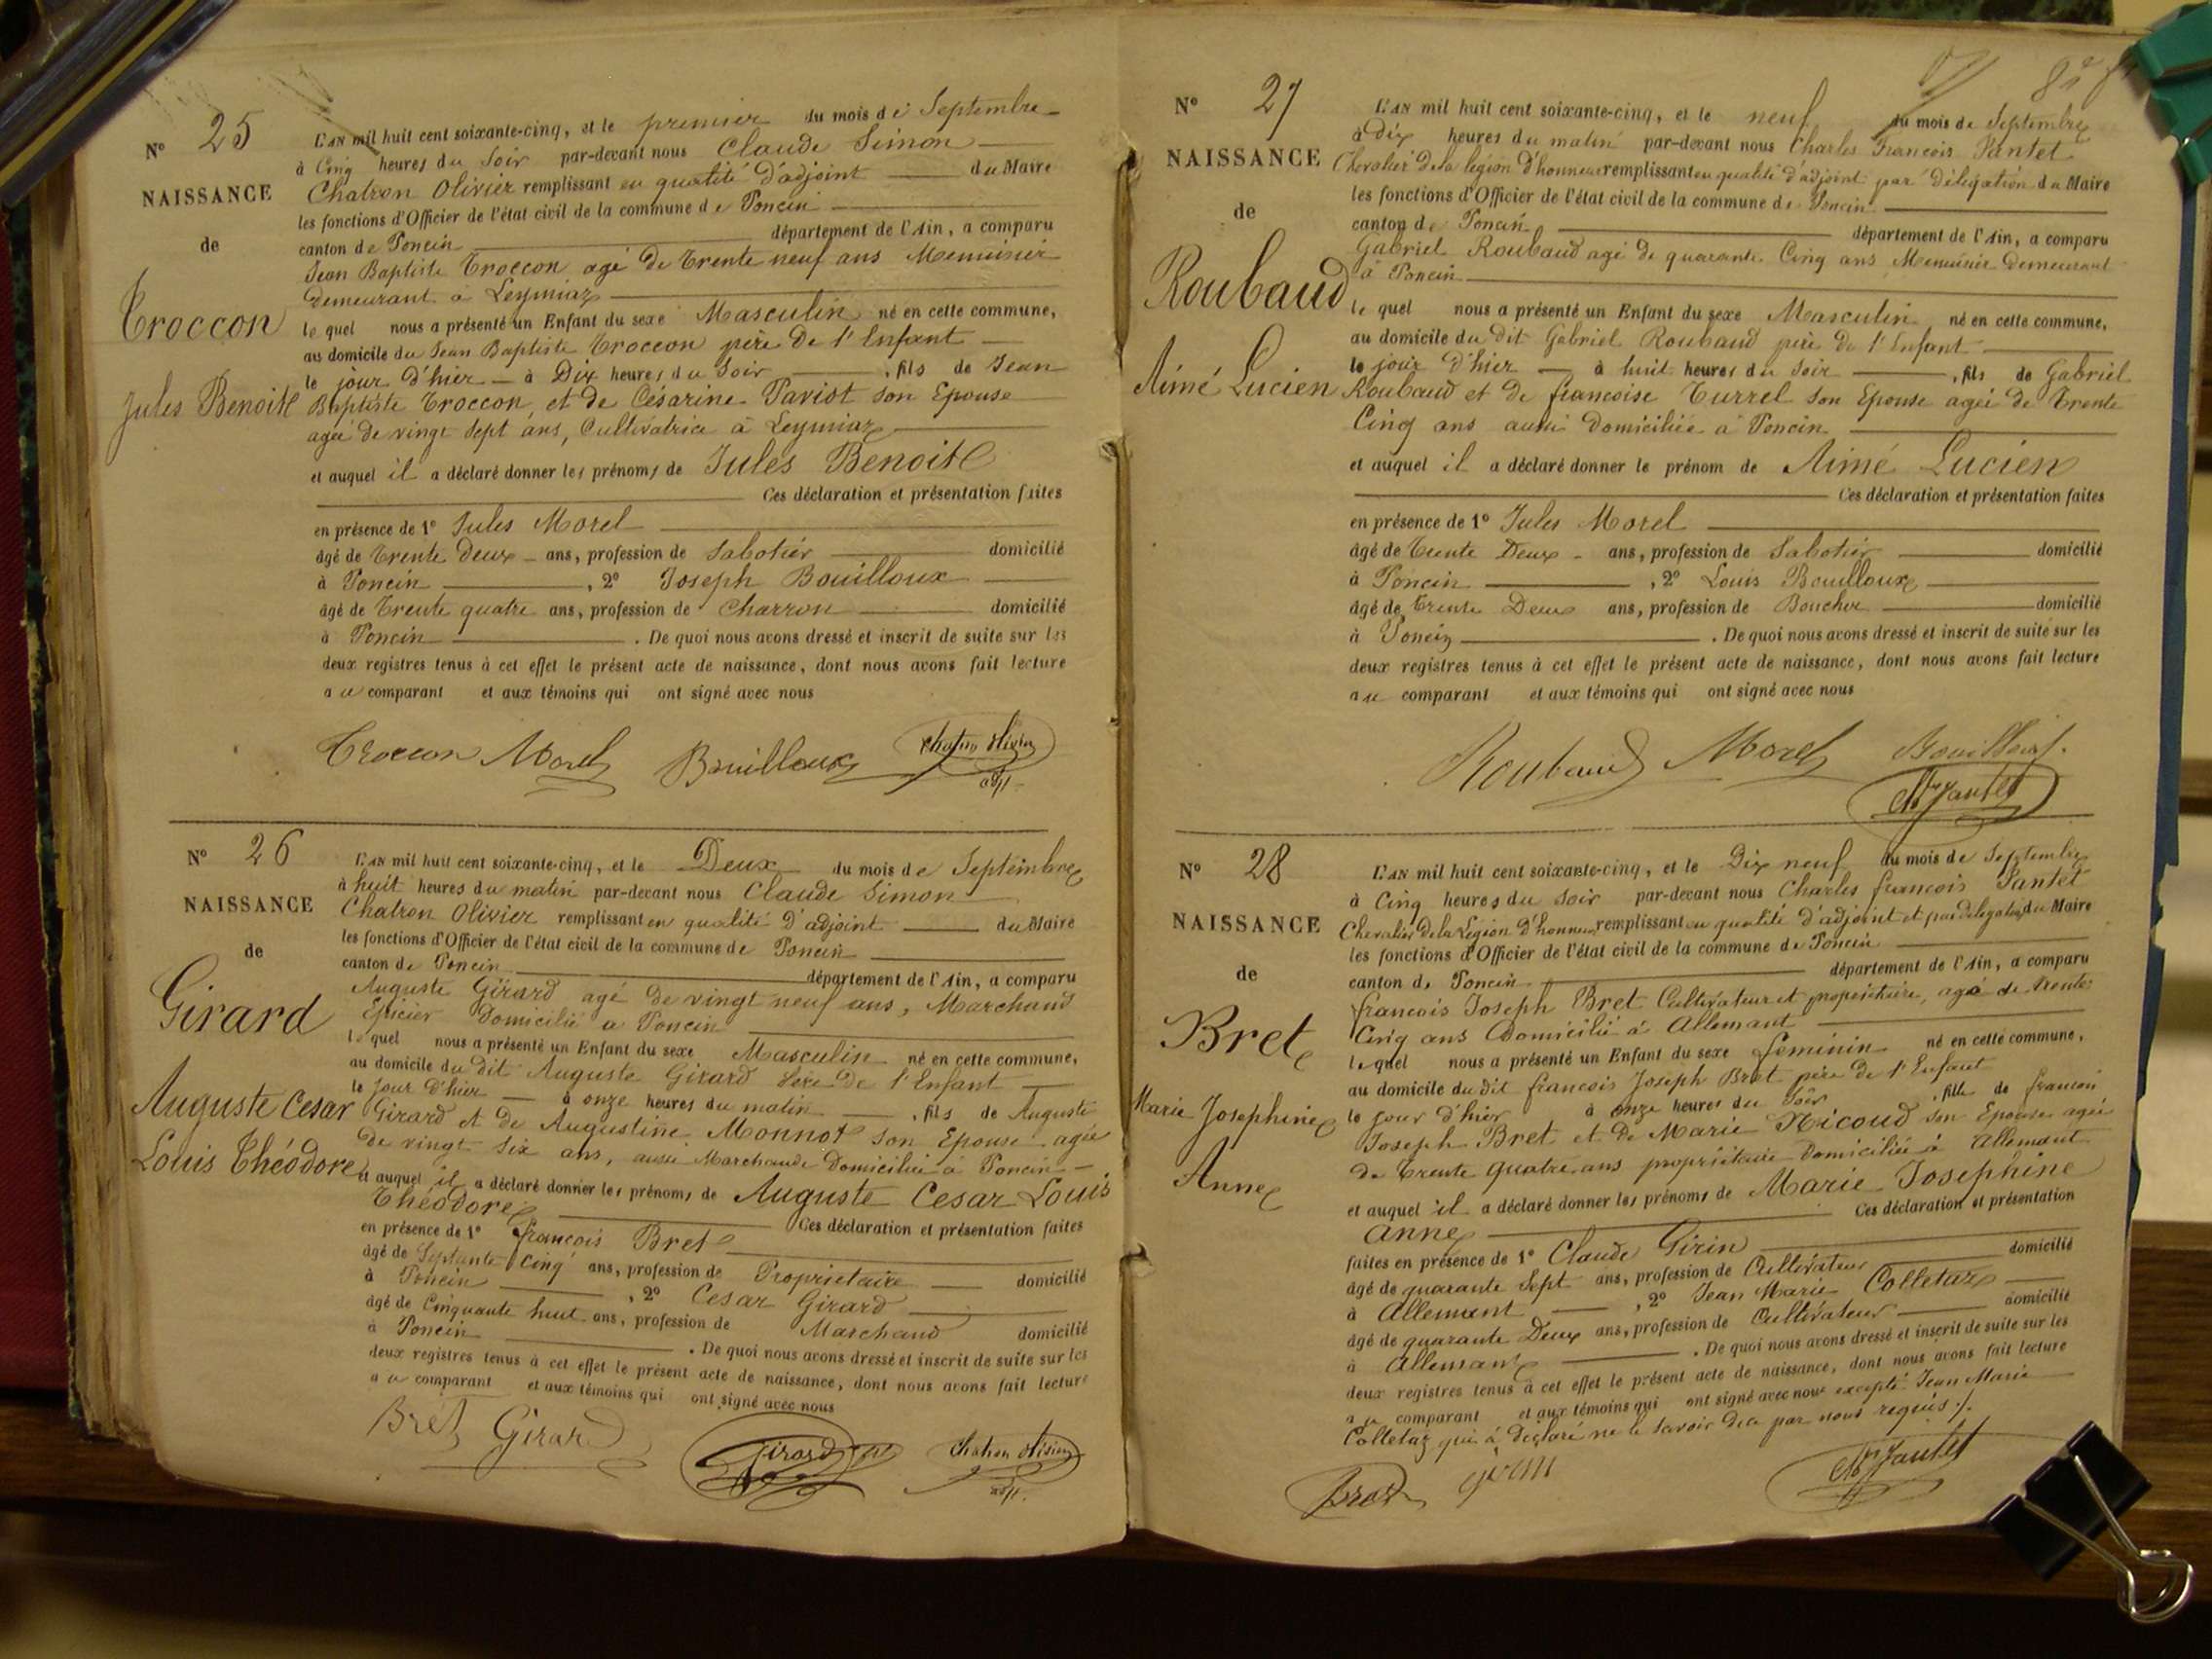 N° 25
NAISSANCE
de
Troccon
Jules Benoit
L'AN mil huit cent soixante-cinq, et le premier du mois de Septembre
à Cinq heures du Soir par-devant nous Claude Simon
Chatron Olivier remplissant en qualité d'adjoint du Maire
les fonctions d'Officier de l'état civil de la commune de Poncin
canton de Poncin département de l'Ain, a comparu
Jean Baptiste Troccon agé de trente neuf ans Menuisier
demeurant à Leymiaz
le quel nous a présenté un Enfant du sexe Masculin né en cette commune,
au domicile du Jean Baptiste Troccon père de l'Enfant
le jour d'hier à Dix heures du Soir, fils de Jean
Baptiste Troccon, et de Césarine Pariot son Epouse
agée de vingt sept ans, Cultivatrice à Leymiaz
et auquel il a déclaré donner les prénoms de Jules Benoit
Ces déclaration et présentation faites
en présence de 1° Jules Morel
âgé de trente deux ans, profession de Sabotier domicilié
à Poncin, 2° Joseph Bouilloux
âgé de trente quatre ans, profession de Charron domicilié
à Poncin. De quoi nous avons dressé et inscrit de suite sur les
deux registres tenus à cet effet le présent acte de naissance, dont nous avons fait lecture
au comparant et aux témoins qui ont signé avec nous
Troccon Morel Bouilloux Chatron Olivier
adjt
N° 26
NAISSANCE
de
Girard
Auguste Cesar
Louis Théodore
L'AN mil huit cent soixante-cinq, et le Deux du mois de Septembre
à huit heures du matin par-devant nous Claude Simon
Chatron Olivier remplissant en qualité d'adjoint du Maire
les fonctions d'Officier de l'état civil de la commune de Poncin
canton de Poncin département de l'Ain, a comparu
Auguste Girard agé de vingt neuf ans, Marchand
Epicier Domicilié a Poncin
lequel nous a présenté un Enfant du sexe Masculin né en cette commune,
au domicile du dit Auguste Girard Père de l'Enfant
le jour d'hier à onze heures du matin, fils de Auguste
Girard et de Augustine Monnot son Epouse agée
de vingt six ans, aussi Marchande Domiciliée à Poncin
et auquel il a déclaré donner les prénoms de Auguste Cesar Louis
Théodore Ces déclaration et présentation faites
en présence de 1° francois Bret
âgé de Septante cinq ans, profession de Proprietaire domicilié
à Poncin, 2° Cesar Girard
âgé de Cinquante huit ans, profession de Marchand domicilié
à Poncin. De quoi nous avons dressé et inscrit de suite sur les
deux registres tenus à cet effet le présent acte de naissance, dont nous avons fait lecture
au comparant et aux témoins qui ont signé avec nous
Bret Girard Girard Chatron Olivier
adjt.
N° 27
NAISSANCE
de
Roubaud
Aimé Lucien
L'AN mil huit cent soixante-cinq, et le neuf du mois de Septembre
à dix heures du matin par-devant nous Charles François Jantet
Chevalier de la légion d'honneur remplissant en qualité d'adjoint par délégation du Maire
les fonctions d'Officier de l'état civil de la commune de Poncin
canton de Poncin département de l'Ain, a comparu
Gabriel Roubaud agé de quarante Cinq ans Menuisier Demeurant
à Poncin
le quel nous a présenté un Enfant du sexe Masculin né en cette commune,
au domicile du dit Gabriel Roubaud père de l'Enfant
le jour d'hier à huit heures du Soir, fils de Gabriel
Roubaud et de francoise Turrel son Epouse agée de trente
Cinq ans aussi Domiciliée à Poncin
et auquel il a déclaré donner le prénom de Aimé Lucien
Ces déclaration et présentation faites
en présence de 1° Jules Morel
âgé de trente Deux ans, profession de Sabotier domicilié
à Poncin, 2° Louis Bouilloux
âgé de trente Deux ans, profession de Boucher domicilié
à Poncin. De quoi nous avons dressé et inscrit de suite sur les
deux registres tenus à cet effet le présent acte de naissance, dont nous avons fait lecture
au comparant et aux témoins qui ont signé avec nous
Roubaud Morel Bouilloux
Jantet
N° 28
NAISSANCE
de
Bret
Marie Josephine
Anne
L'AN mil huit cent soixante-cinq, et le Dix neuf du mois de Septembre
à Cinq heures du Soir par-devant nous Charles francois Jantet
Chevalier de la Légion d'honneur remplissant en qualité d'adjoint et par délégation du Maire
les fonctions d'Officier de l'état civil de la commune de Poncin
canton de Poncin département de l'Ain, a comparu
francois Joseph Bret Cultivateur et propriétaire, agé de trente
Cinq ans Domicilié à Allemant
lequel nous a présenté un Enfant du sexe feminin né en cette commune,
au domicile du dit francois Joseph Bret père de l'Enfant
le jour d'hier à onze heures du Soir, fille de francois
Joseph Bret et de Marie Nicoud son Epouse agée
de trente quatre ans propriétaire Domiciliée à Allemant
et auquel il a déclaré donner les prénoms de Marie Josephine
Anne Ces déclaration et présentation
faites en présence de 1° Claude Girin
âgé de quarante Sept ans, profession de Cultivateur domicilié
à Allemant, 2° Jean Marie Colletaz
âgé de quarante Deux ans, profession de Cultivateur domicilié
à Allemant. De quoi nous avons dressé et inscrit de suite sur les
deux registres tenus à cet effet le présent acte de naissance, dont nous avons fait lecture
au comparant et aux témoins qui ont signé avec nous excepté Jean Marie
Colletaz qui a déclaré ne le savoir de ce par nous requis ./.
Bret girin Jantet